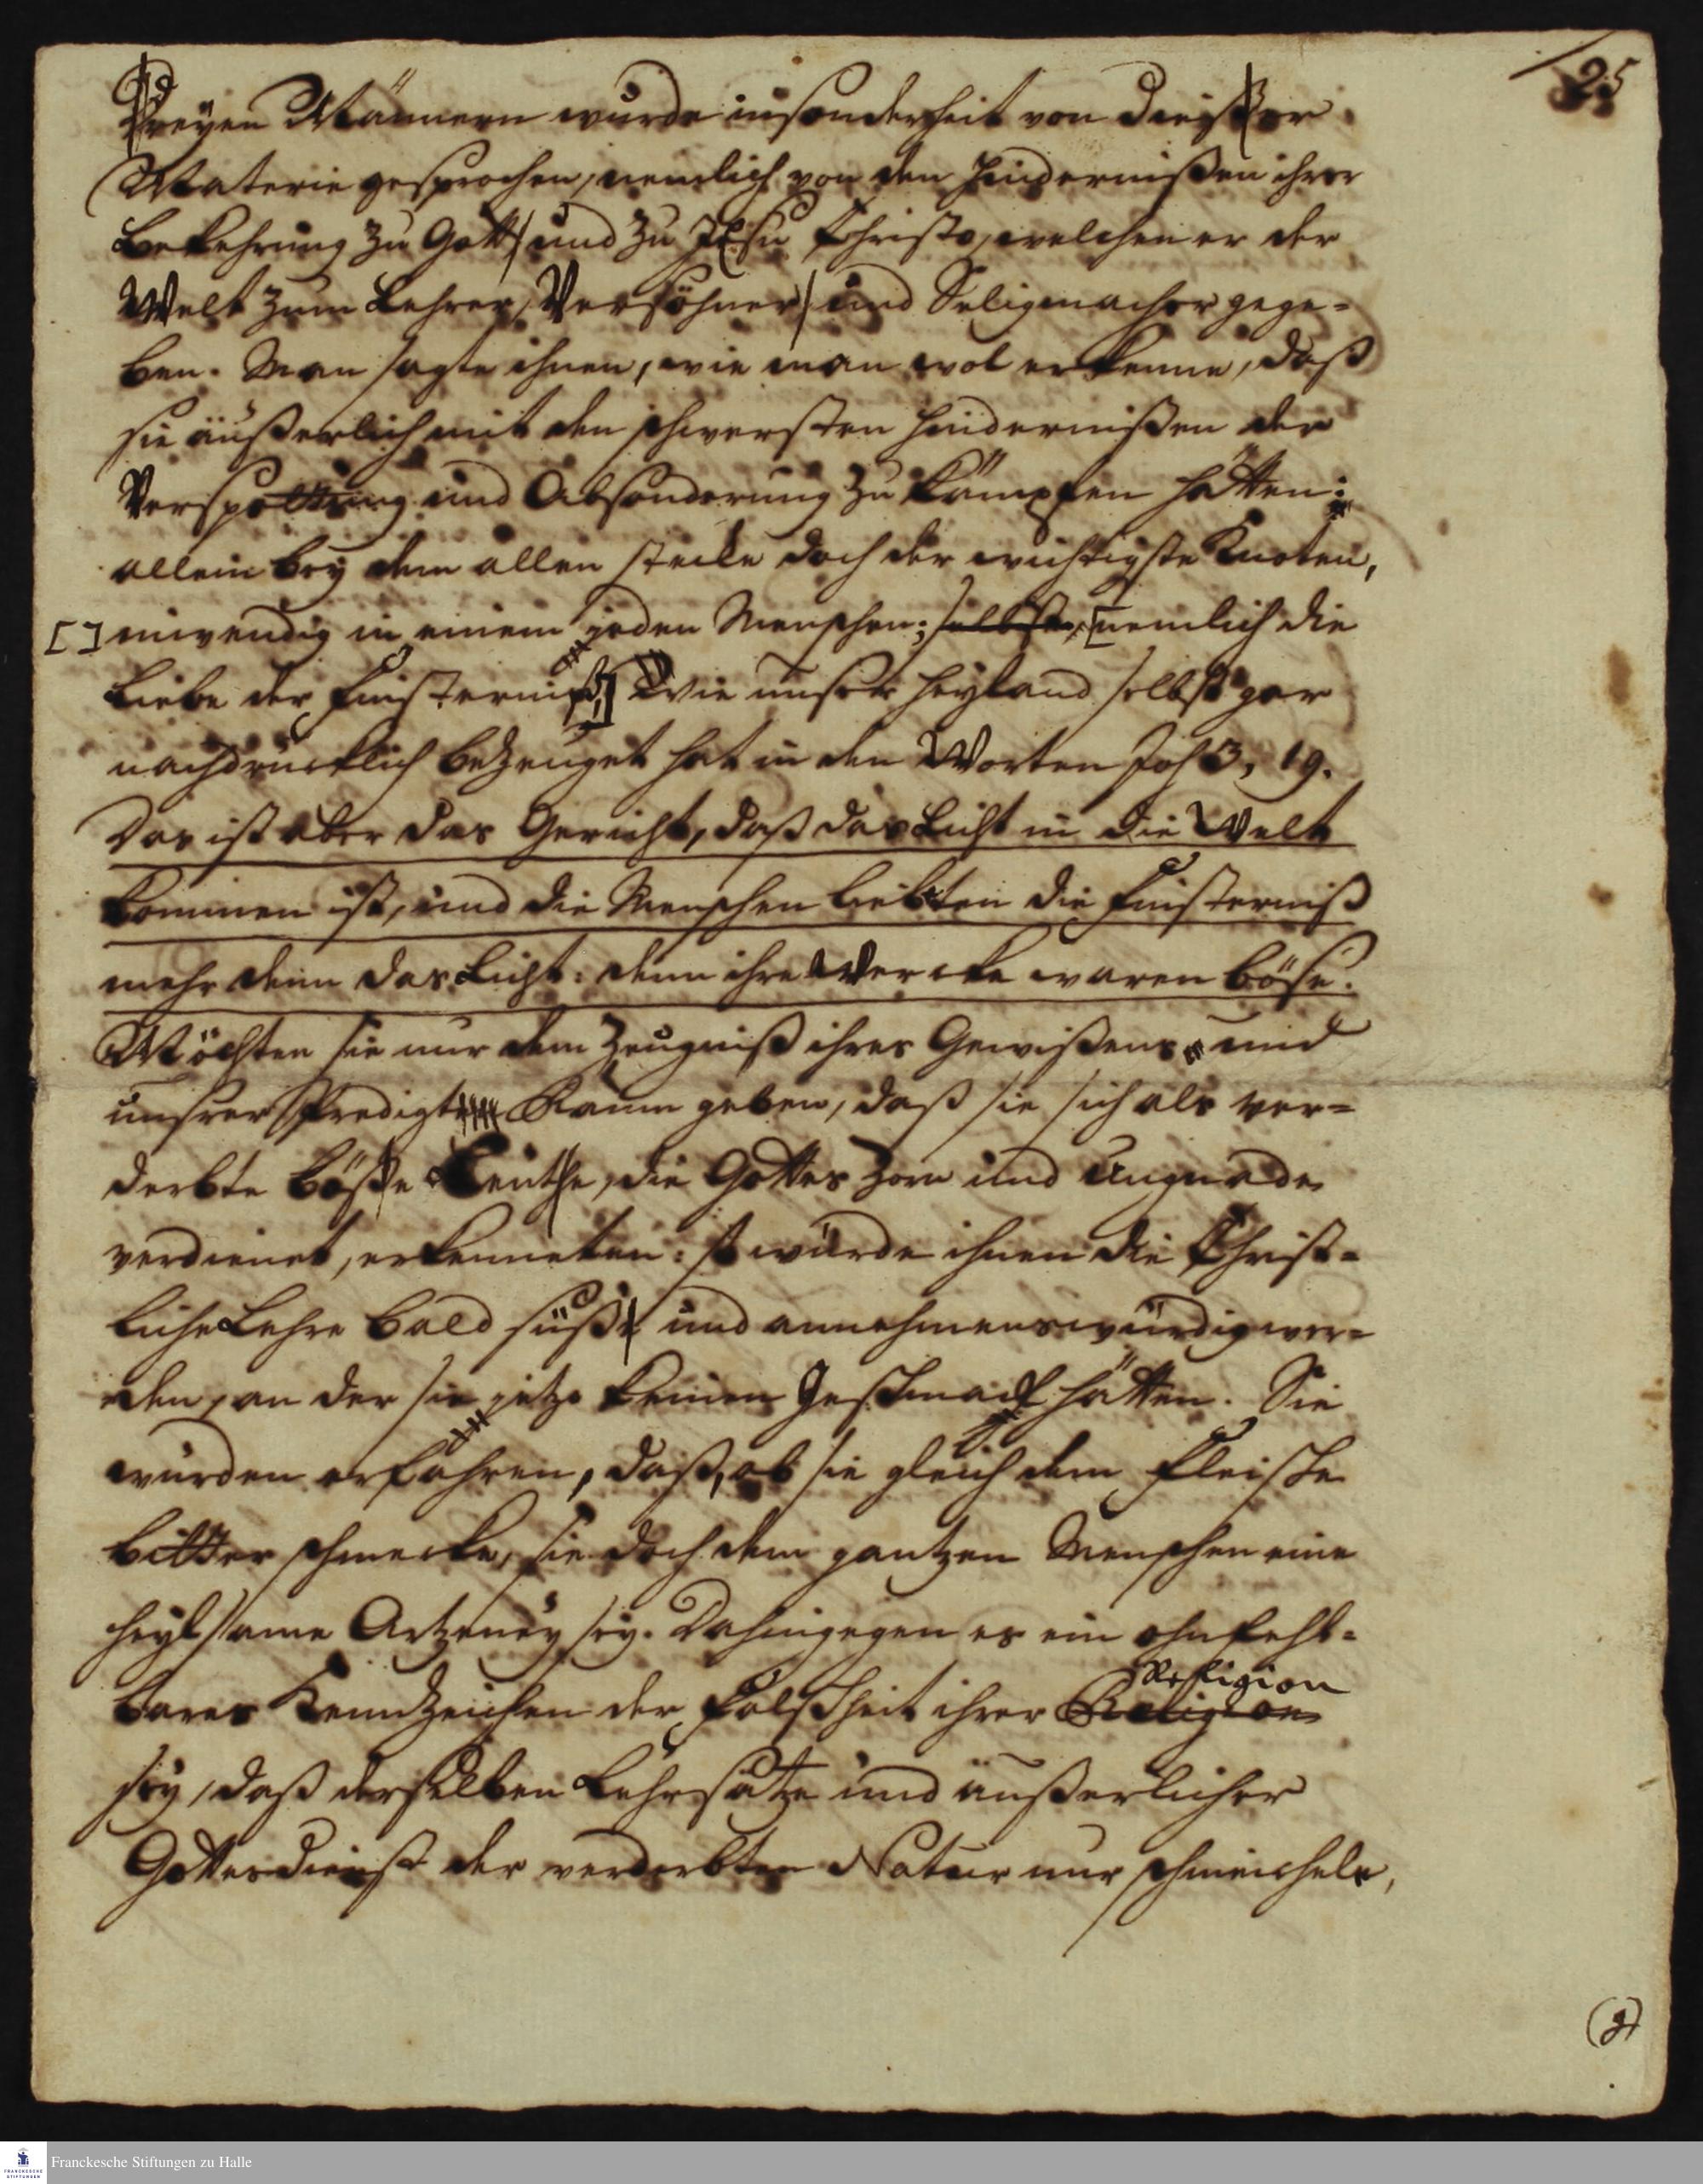 25
Dreyen Männern wurde insonderheit von dieser
Materie gesprochen, nemlich von den Hindernißen ihrer
Bekehrung zu Gott und zu JEsu Christo, welchen er der
Welt zum Lehrer, Versöhner und Seligmacher gege-
ben. Man sagte ihnen, wie man wol erkenne, daß
sie äußerlich mit den schwersten Hindernißen der
Verspottung und Absonderung zu kämpfen hätten:
allein bey dem allen stecke doch der wichtigste Knoten,
[ ] inwendig in einem jeden Menschen; selbst, [nemlich die
Liebe der Finsterniß,] Wie unser Heyland selbst gar
nachdrücklich bezeuget hat in den Worten Joh 3, 19.
Das ist aber das Gericht, daß das Licht in die Welt
kommen ist, und die Menschen liebten die Finsterniß
mehr denn das Licht: denn ihre Wercke waren böse.
Möchten sie nur dem Zeugniß ihres Gewißens und
unsrer Predigt Raum geben, daß sie sich als ver-
derbte böse Leuthe, die Gottes Zorn und Ungnade
verdienet, erkenneten: so würde ihnen die Christ-
liche Lehre bald süß und annehmenswürdig wer-
den, an der sie jetzo keinen Geschmack hätten. Sie
würden erfahren, daß, ob sie gleich dem Fleische
bitter schmecke, sie doch dem gantzen Menschen eine
heylsame Artzeney sey. Dahingegen es ein ohnfehl-
bares Kennzeichen der Falschheit ihrer Religion
Religion
sey, daß derselben Lehrsätze und äußerlicher
Gottesdienst der verderbten Natur nur schmeichele,
(g)
Franckesche Stiftungen zu Halle
FRANCKESCHE STIFTUNGEN